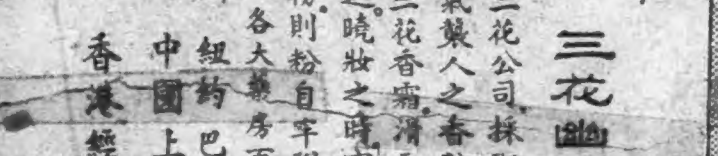 三花幽
花公司採
氣襲人之香
花香霜滑
曉妝之時
則粉自牢
各大藥房
紐約 巴
中國上
香港經